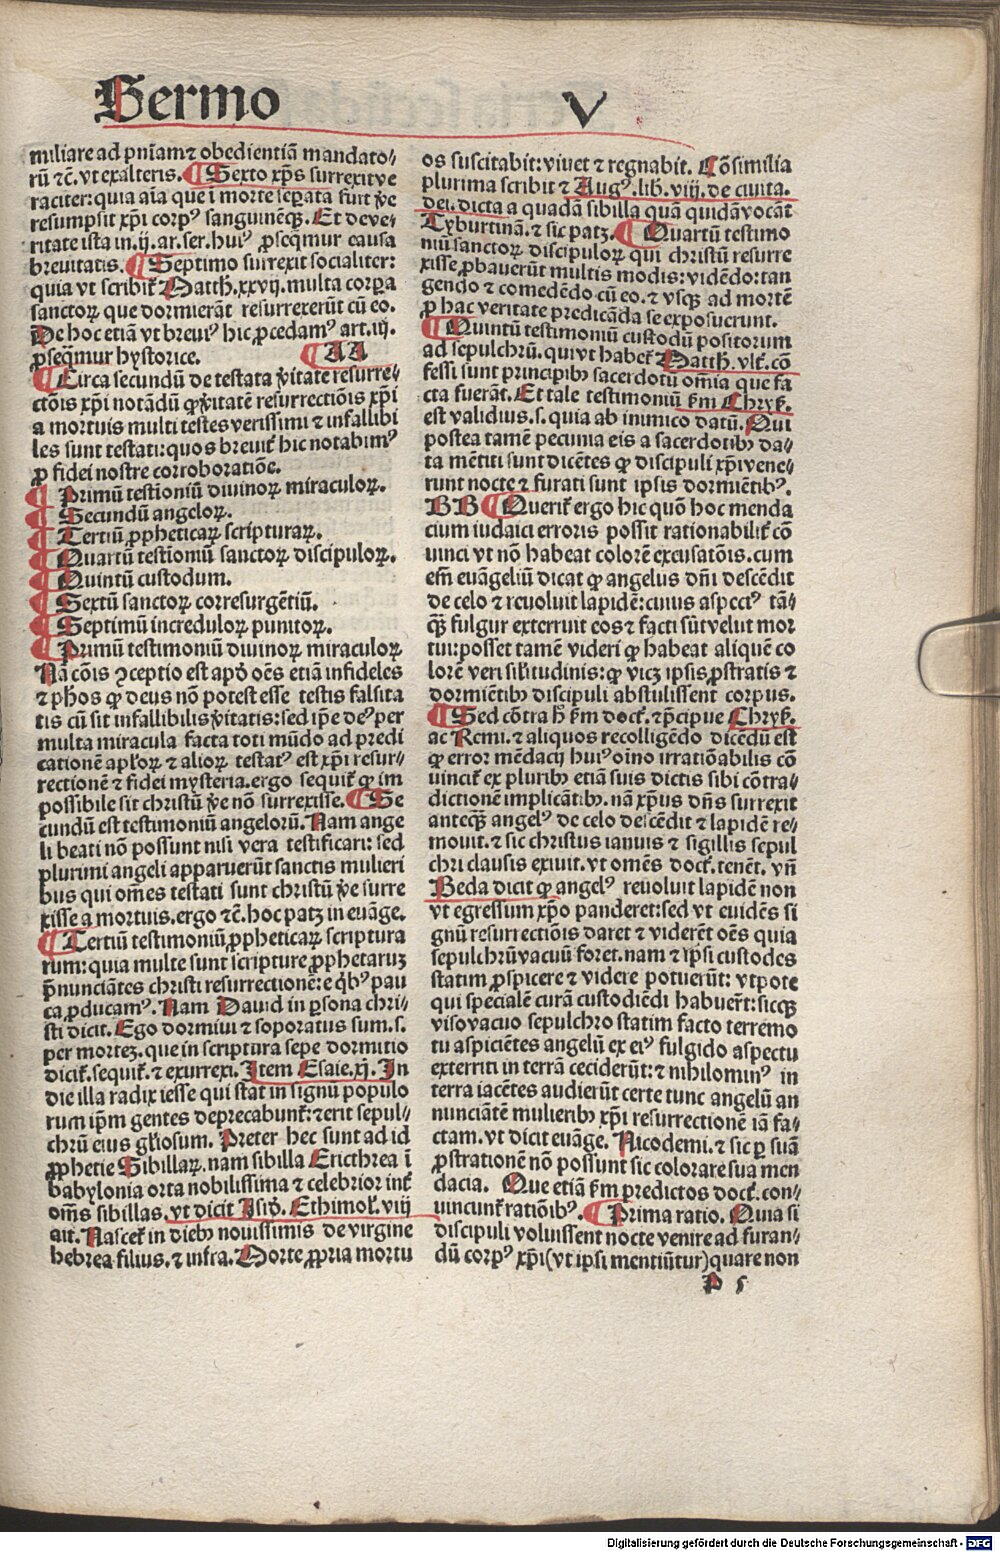 Sermo V
miliare ad pn̄iam ⁊ obedientiā mandato⸗
rū ⁊c̄. vt exalteris. ¶ Sexto xp̄s surrexit ve
raciter: quia aīa que ī morte sepata fuit v̄e
resumpsit xp̄i corpꝰ sanguineqꝫ. Et de ve⸗
ritate ista in .ij. ar. ser. huiꝰ ꝓseq̄mur causa
breuitatis. ¶ Septimo surrexit socialiter:
quia vt scribit᷑ Matth. xxvij. multa corpa
sanctoꝝ que dormierāt resurrexerūt cū eo.
De hoc etiā vt breuiꝰ hic ꝓcedamꝰ art. iij.
ꝓseq̄mur hystorice. ¶ AA
¶ Circa secundū de testata v̄itate resurre⸗
ctōis xp̄i notādū ꝙ v̄itatē resurrectiōis xp̄i
a mortuis multi testes verissimi ⁊ infallibi
les sunt testati: quos breuit᷑ hic notabimꝰ
ꝓ fidei nostre corroboratiōe.
¶ Primū testioniū diuinoꝝ miraculoꝝ.
¶ Secundū angeloꝝ.
¶ Tertiū ꝓpheticaꝝ scripturaꝝ.
¶ Quartū testioniū sanctoꝝ discipuloꝝ.
¶ Quintū custodum.
¶ Sextū sanctoꝝ corresurgētiū.
¶ Septimū increduloꝝ punitoꝝ.
¶ Primū testimoniū diuinoꝝ miraculoꝝ
Nā cōis ꝯceptio est apd̓ oēs etiā infideles
⁊ ph̓os ꝙ deus nō potest esse testis falsita
tis cū sit infallibilis v̄itatis: sed ip̄e deꝰ per
multa miracula facta toti mūdo ad predi
cationē apl̓oꝝ ⁊ alioꝝ testatꝰ est xp̄i resur⸗
rectionē ⁊ fidei mysteria. ergo sequit᷑ ꝙ im
possibile sit christū v̄e nō surrexisse. ¶ Se
cundū est testimoniū angelorū. Nam ange
li beati nō possunt nisi vera testificari: sed
plurimi angeli apparuerūt sanctis mulieri
bus qui om̄es testati sunt christū v̄e surre
xisse a mortuis. ergo ⁊c̄. hoc patꝫ in euāge.
¶ Tertiū testimoniū ꝓpheticaꝝ scriptura
rum: quia multe sunt scripture ꝓphetaruꝫ
p̄nunciātes christi resurrectionē: e q̄bꝰ pau
ca ꝓducamꝰ. Nam Dauid in ꝑsona chri⸗
sti dicit. Ego dormiui ⁊ soporatus sum. s.
per morteꝫ. que in scriptura sepe dormitio
dicit᷑. sequit᷑. ⁊ exurrexi. Item Esaie. xj. In
die illa radix iesse qui stat in signū populo
rum ip̄m gentes deprecabunt᷑: ⁊ erit sepul⸗
chrū eius gl̓iosum. Preter hec sunt ad id
ꝓphetie Sibillaꝝ. nam sibilla Ericthrea ī
babylonia orta nobilissima ⁊ celebrior int᷑
om̄s sibillas. vt dicit Isid̓. Ethimol̓. viij
ait. Nascet᷑ in diebꝫ nouissimis de virgine
hebrea filius. ⁊ infra. Morte ꝓpria mortu
os suscitabit: viuet ⁊ regnabit. Cōsimilia
plurima scribit ⁊ Augꝰ. lib. viij. de ciuita.
dei. dicta a quadā sibilla quā quidā vocāt
Tyburtinā. ⁊ sic patꝫ. ¶ Quartū testimo
niū sanctoꝝ discipuloꝝ qui christū resurre
xisse ꝓbauerūt multis modis: vidēdo: tan
gendo ⁊ comedēdo cū eo. ⁊ vsqꝫ ad mortē
ꝓ hac veritate predicāda se exposuerunt.
¶ Quintū testimoniū custodū positorum
ad sepulchrū. qui vt habet᷑ Matth. vlt̓. cō
fessi sunt principibꝫ sacerdotū om̄ia que fa
cta fuerāt. Et tale testimoniū ẜm Chryẜ.
est validius. s. quia ab inimico datū. Qui
postea tamē pecunia eis a sacerdotibꝫ da⸗
ta mētiti sunt dicētes ꝙ discipuli xp̄i vene⸗
runt nocte ⁊ furati sunt ipsis dormiētibꝰ.
BB ¶ Querit᷑ ergo hic quō hoc menda
cium iudaici erroris possit rationabilit᷑ cō
uinci vt nō habeat colorē excusatōis. cum
em̄ euāgeliū dicat ꝙ angelus dn̄i descēdit
de celo ⁊ reuoluit lapidē: cuius aspectꝰ tā⸗
qꝫ̄ fulgur exterruit eos ⁊ facti sūt velut mor
tui: posset tamē videri ꝙ habeat aliquē co
lorē veri sil̓itudinis: ꝙ vicꝫ ipsis ꝓstratis ⁊
dormiētibꝫ discipuli abstulissent corpus.
¶ Sed cōtra h̓ ẜm doct᷑. ⁊ p̄cipue Chryẜ.
ac Remi. ⁊ aliquos recolligēdo dicēdū est
ꝙ error mēdacij huiꝰ oīno irratiōabilis cō
uincit᷑ ex pluribꝫ etiā suis dictis sibi cōtra⸗
dictionē implicātibꝫ. nā xp̄us dn̄s surrexit
anteqꝫ̄ angelꝰ de celo descēdit ⁊ lapidē re⸗
mouit. ⁊ sic christus ianuis ⁊ sigillis sepul
chri clausis exiuit. vt omēs doct᷑. tenēt. vn̄
Beda dicit ꝙ angelꝰ reuoluit lapidē non
vt egressum xp̄o panderet: sed vt euidēs si
gnū resurrectiōis daret ⁊ viderēt oēs quia
sepulchrū vacuū foret. nam ⁊ ip̄si custodes
statim ꝓspicere ⁊ videre potuerūt: vtpote
qui specialē curā custodiēdi habuer̄t: sicqꝫ
viso vacuo sepulchro statim facto terremo
tu aspiciētes angelū ex eiꝰ fulgido aspectu
exterriti in terrā ceciderūt: ⁊ nihilominꝰ in
terra iacētes audierūt certe tunc angelū an
nunciātē mulieribꝫ xp̄i resurrectionē iā fa⸗
ctam. vt dicit euāge. Nicodemi. ⁊ sic ꝑ suā
ꝓstrationē nō possunt sic colorare sua men
dacia. Que etiā ẜm predictos doct᷑. con⸗
uincunt᷑ ratiōibꝰ. ¶ Prima ratio. Quia si
discipuli voluissent nocte venire ad furan⸗
dū corpꝰ xp̄i (vt ipsi mentiūtur) quare non
P 5
Digitalisierung gefördert durch die Deutsche Forschungsgemeinschaft - DFG